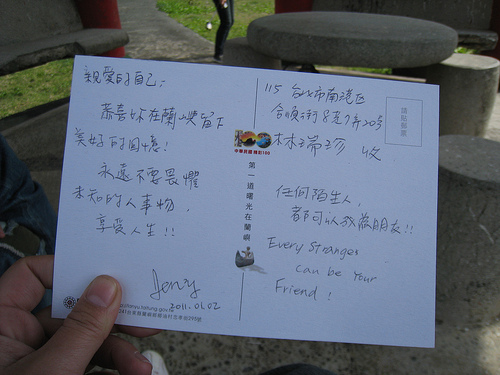 親愛的自己：
恭喜妳在蘭嶼留下
美好的回憶！
永遠不要畏懼
未知的人事物，
享受人生!!
Jenny
2011.01.02
115 台北市南港區
林瑞珍 收
請貼郵票
中華民國 精彩100
第一道曙光在蘭嶼
任何陌生人，
都可以成為朋友!!
Every Stranger
can be Your
Friend !